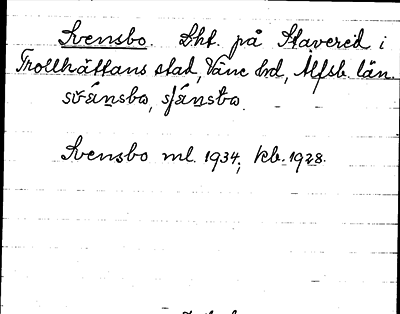 Svensbo. Lht. på Stavered i
Trollhättans stad, Väne hrd, Älfsb. län.
svä́nsbo, sjä́nsbo.
Svensbo ml. 1934; kb. 1928.